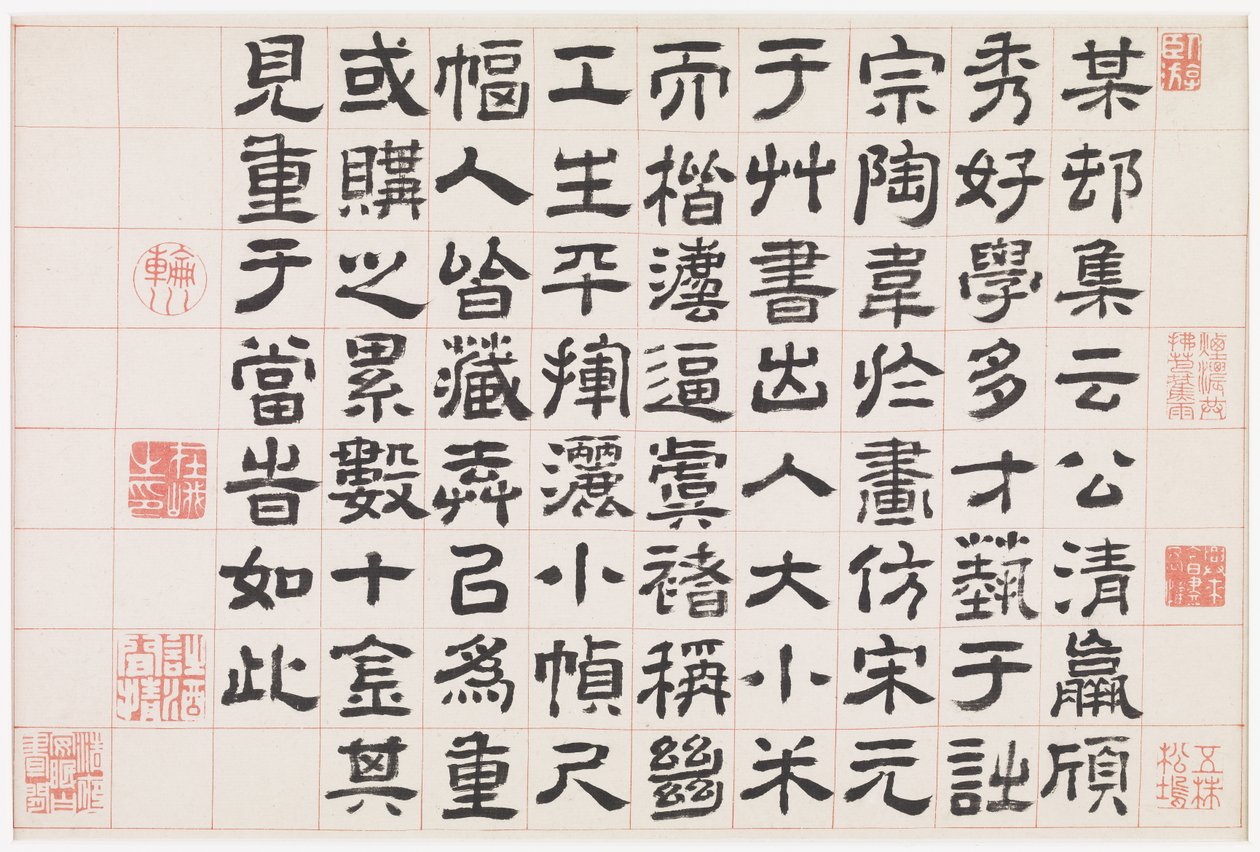 某邨集云公清羸頎
秀好學多才藝于詩
宗陶韋於畫仿宋元
于艸書出入大小米
而楷灋逼虞褚稱𢇍
工生平揮灑小幀尺
幅人皆藏弆㠯為重
或購之累數十金其
見重于當旹如此
五株松塢